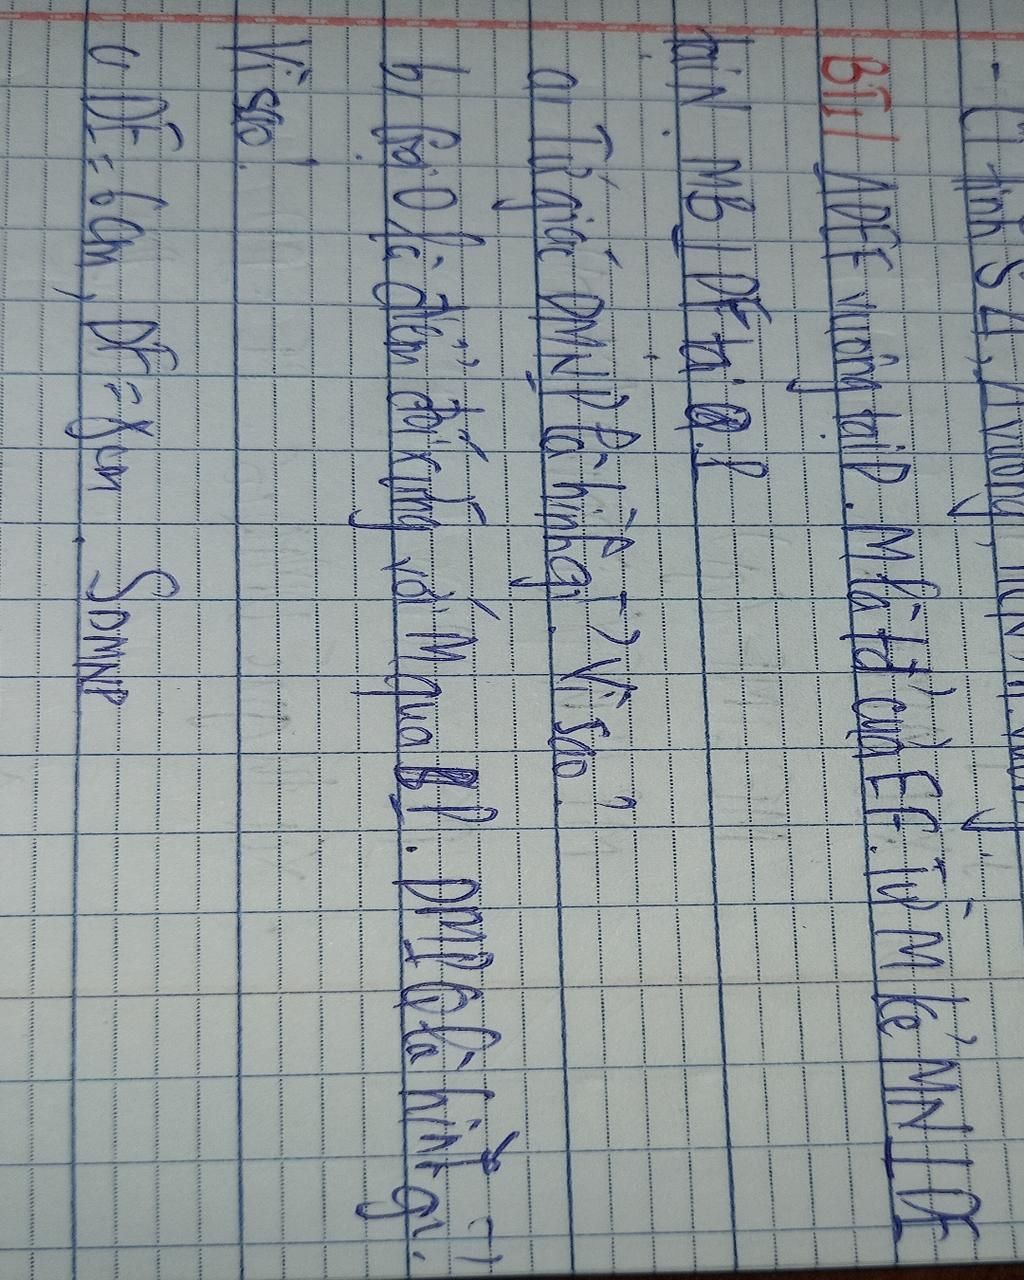 BT1/ ΔDEF vuông tại D. M là tđ của EF. Từ M kẻ MN⊥DE
tại N MB⊥DF tại P
a, Tứ giác DMNP là hình gì? Vì sao?
b, Gọi Q là điểm đối xứng với M qua P. DMPQ là hình gì.
Vì sao?
c, DE=6cm, DF=8cm. SDMNP